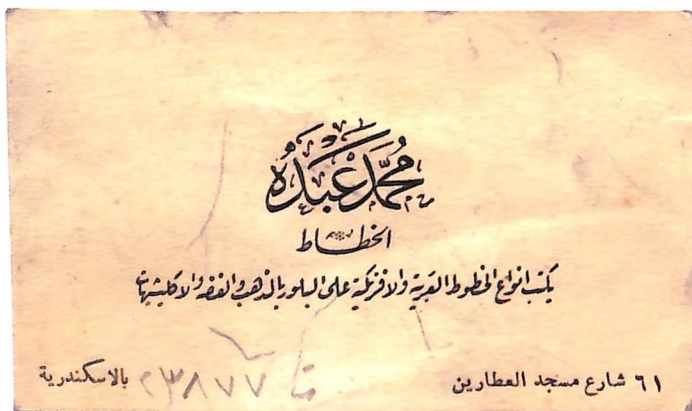 محمد عبده
الخطاط
يكتب انواع الخطوط العربية والافرنكية على البلور بالذهب والفضة والاكليشيهات
٦١ شارع مسجد العطارين ت ٢٣٨٧٧ بالاسكندرية